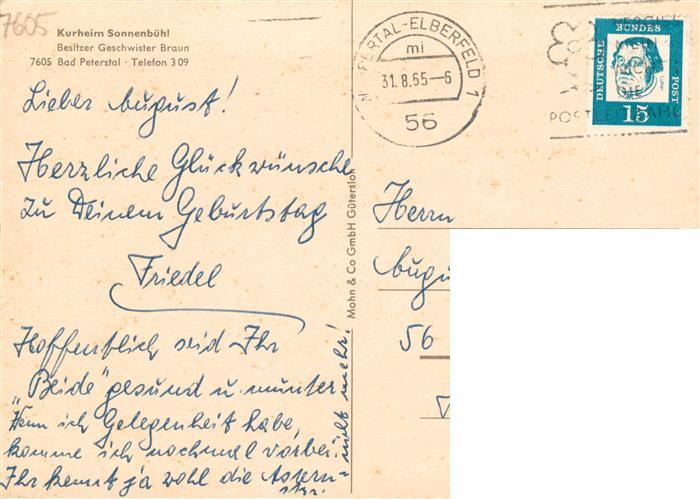 7605
Kurheim Sonnenbühl
Besitzer Geschwister Braun
7605 Bad Peterstal · Telefon 3 09
Lieber August!
Herzliche Glückwünsche
zu Deinem Geburtstag
Friedel
Hoffentlich seid Ihr
„Beide" gesund u. munter.
Wenn ich Gelegenheit habe,
komme ich nochmal vorbei.
Ihr kennt ja wohl die Astern-
str.
nicht mehr!
Mohn & Co GmbH Gütersloh
PERTAL-ELBERFELD 1
mi
31.8.65-6
56
DEUTSCHE BUNDES POST
15
Herrn
Augu
56